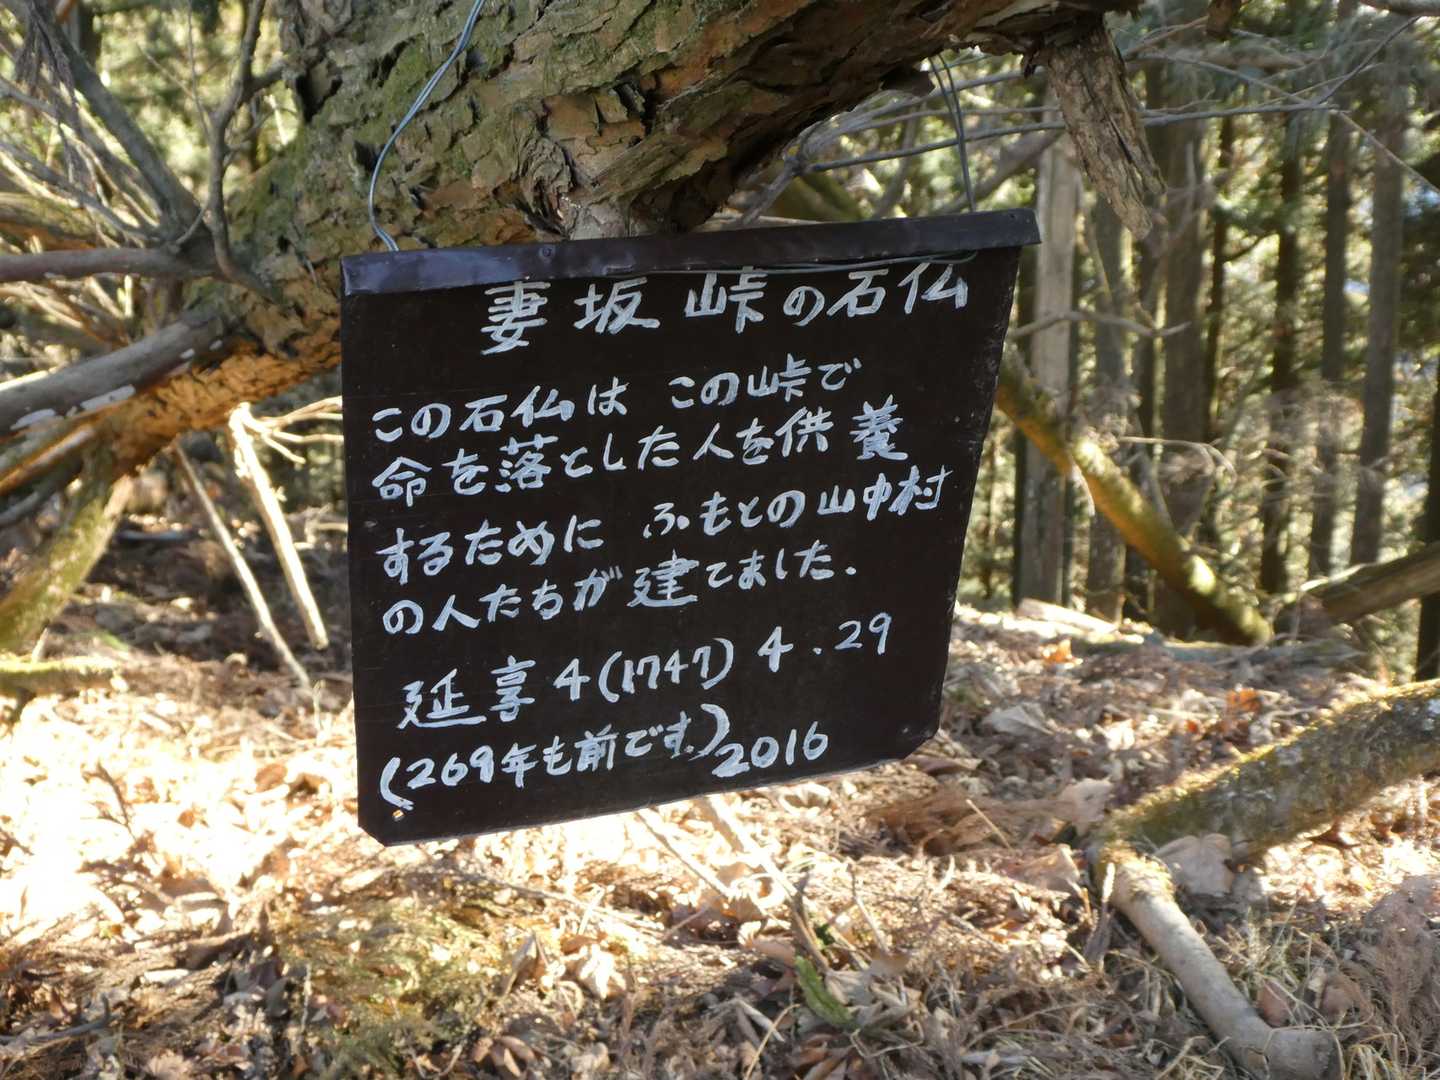 妻坂峠の石仏
この石仏は この峠で
命を落とした人を供養
するために ふもとの山中村
の人たちが建てました.
延享4(1747) 4.29
(269年も前です.) 2016